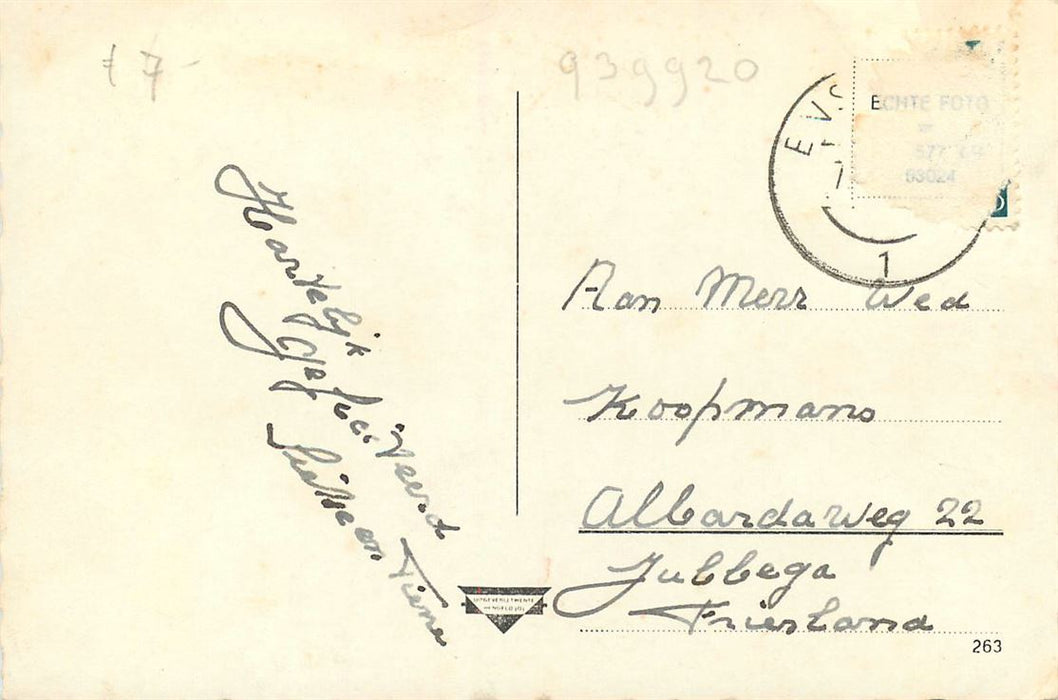 7-
939920
EVS
ECHTE FOTO
577 69
03024
1
Hartelijk
Gefeliteerd
Sietse en Tiene
Aan Merr Wed
Koopmans
Albardaweg 22
Jubbega
Friesland
263